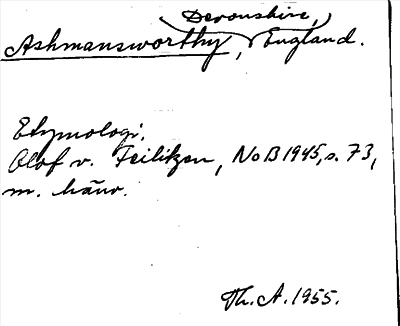 Devonshire,
Ashmansworthy, England.
Etymologi.
Olof v. Feilitzen, NoB 1945, s. 73,
m. hänv.
Th. A. 1955.